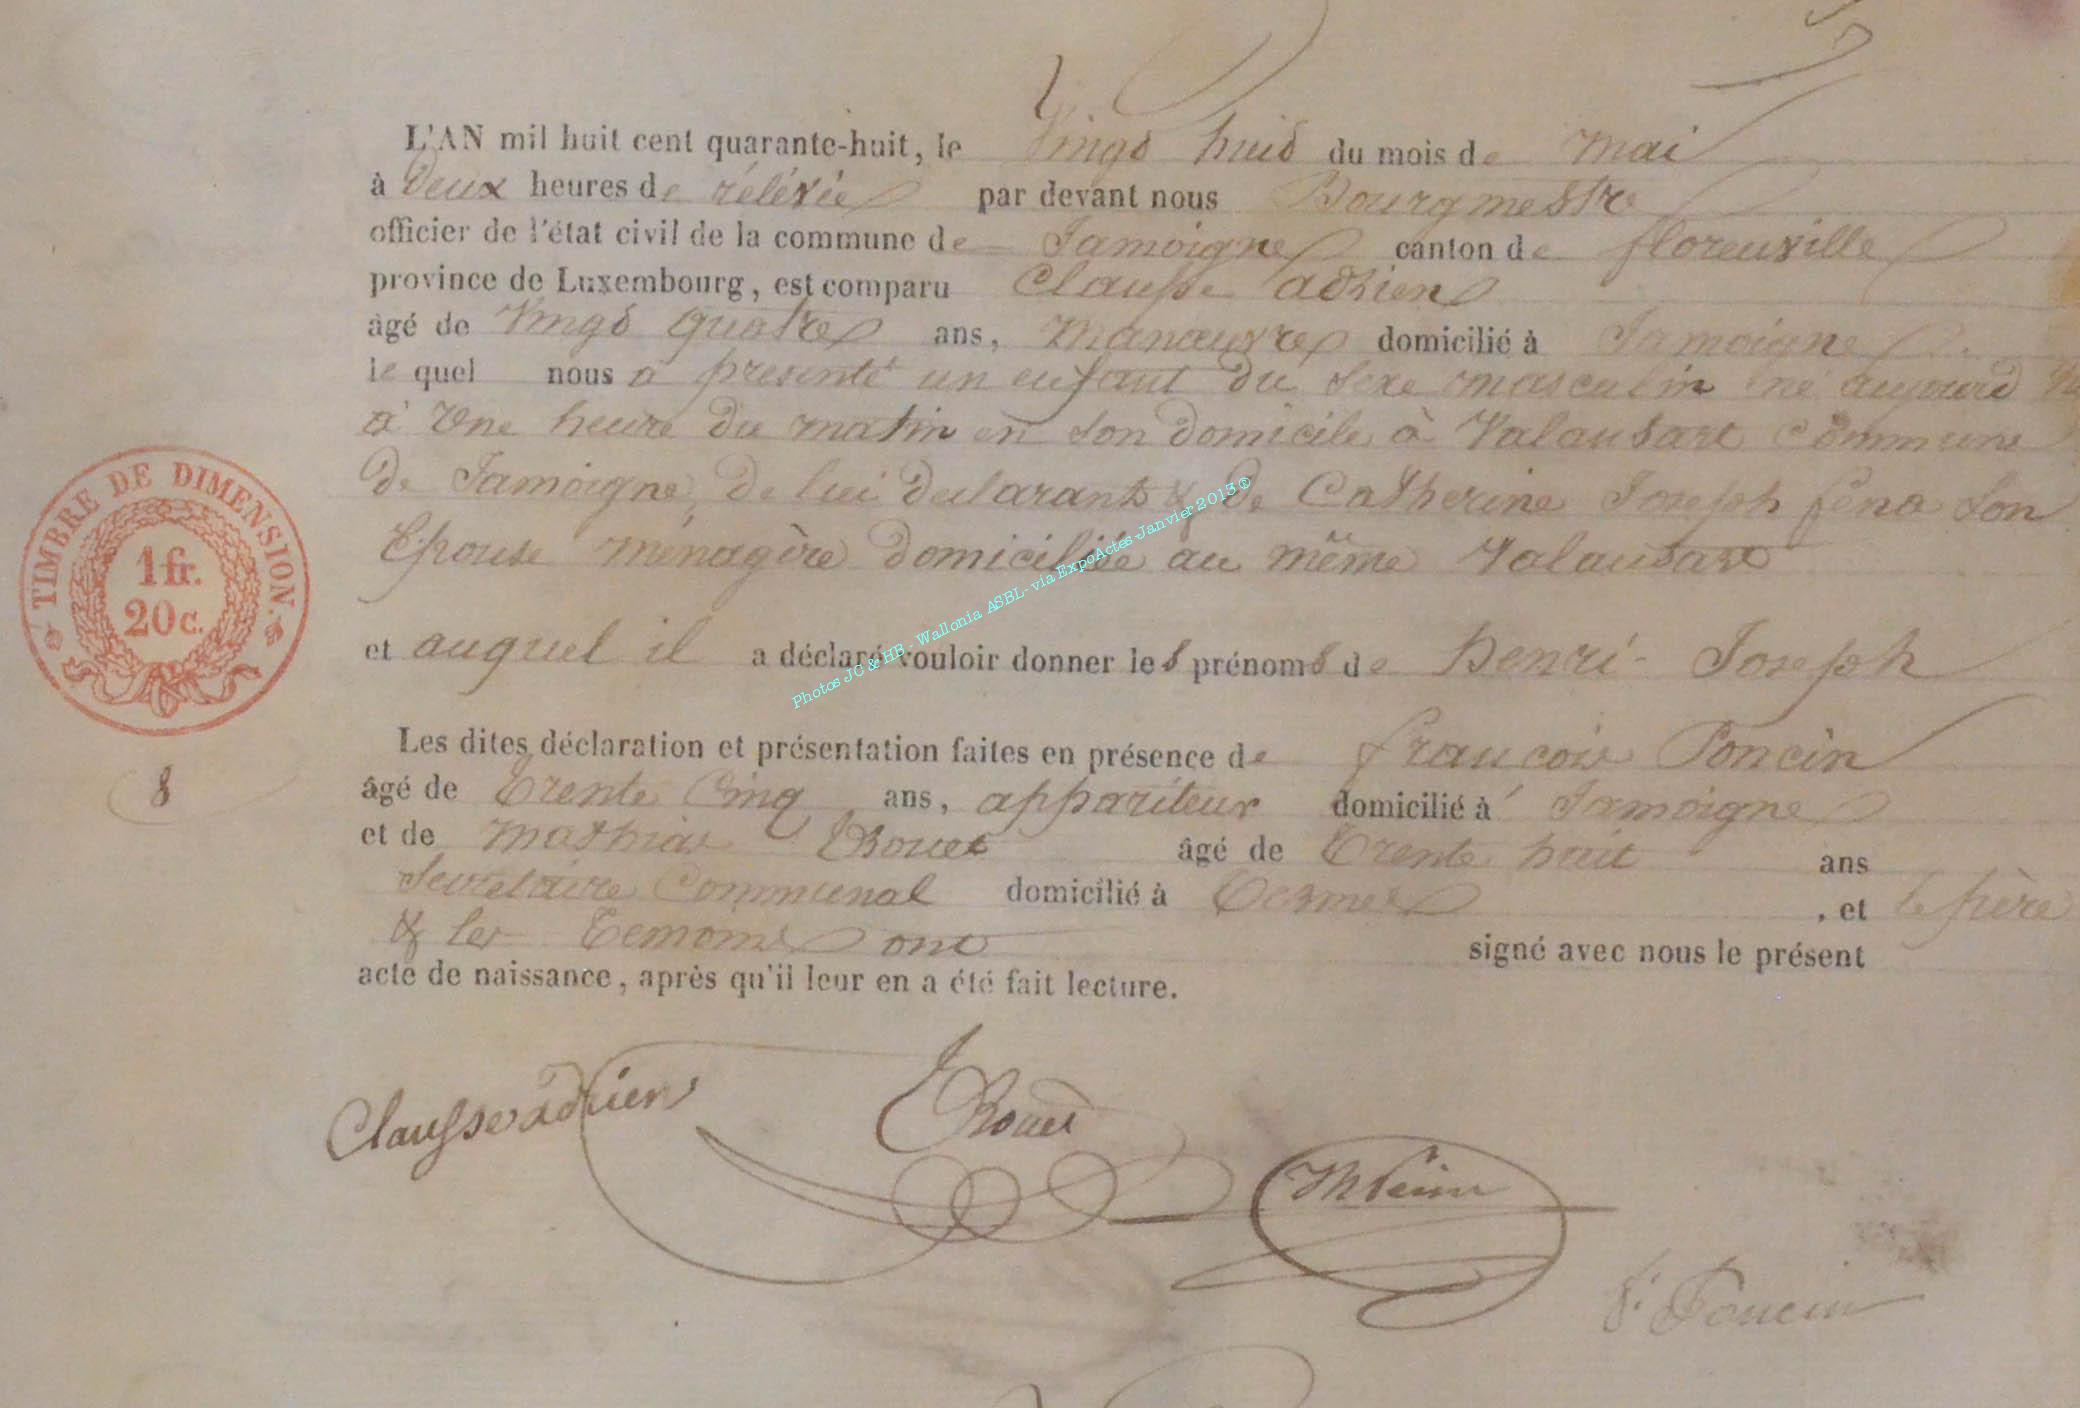 L'AN mil huit cent quarante-huit, le Vingt huit du mois de Mai
à Deux heures de rélévée par devant nous Bourgmestre
officier de l'état civil de la commune de Jamoigne canton de florenville
province de Luxembourg, est comparu Clausse adrien
âgé de Vingt quatre ans, Manœuvre domicilié à Jamoigne
le quel nous a présenté un enfant du sexe masculin né aujourd'hu
à Une heure du matin en son domicile à Valansart Commune
de Jamoigne, de lui declarant & de Catherine Joseph féna son
Epouse ménagère domiciliée au même Valansart
TIMBRE DE DIMENSION.
1 fr.
20 c.
et auquel il a déclaré vouloir donner les prénoms de Henri-Joseph
Les dites déclaration et présentation faites en présence de francois Poncin
8
âgé de Trente Cinq ans, appariteur domicilié à Jamoigne
et de Mathias âgé de Trente huit ans
Secretaire Communal domicilié à Termes, et le père
& les Temoins ont signé avec nous le présent
acte de naissance, après qu'il leur en a été fait lecture.
Clausse adrien
F. Poncin
Photos JC & HB - Wallonia ASBL - via ExpoActes - Janvier 2013 ®